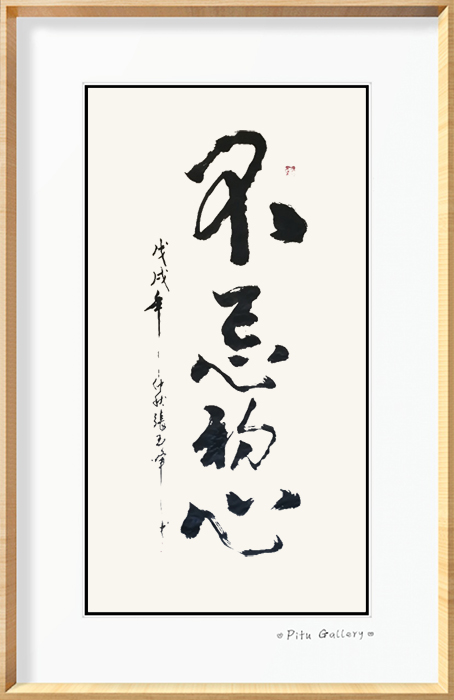 不忘初心
戊戌年仲秋張玉峰书
Pitu Gallery